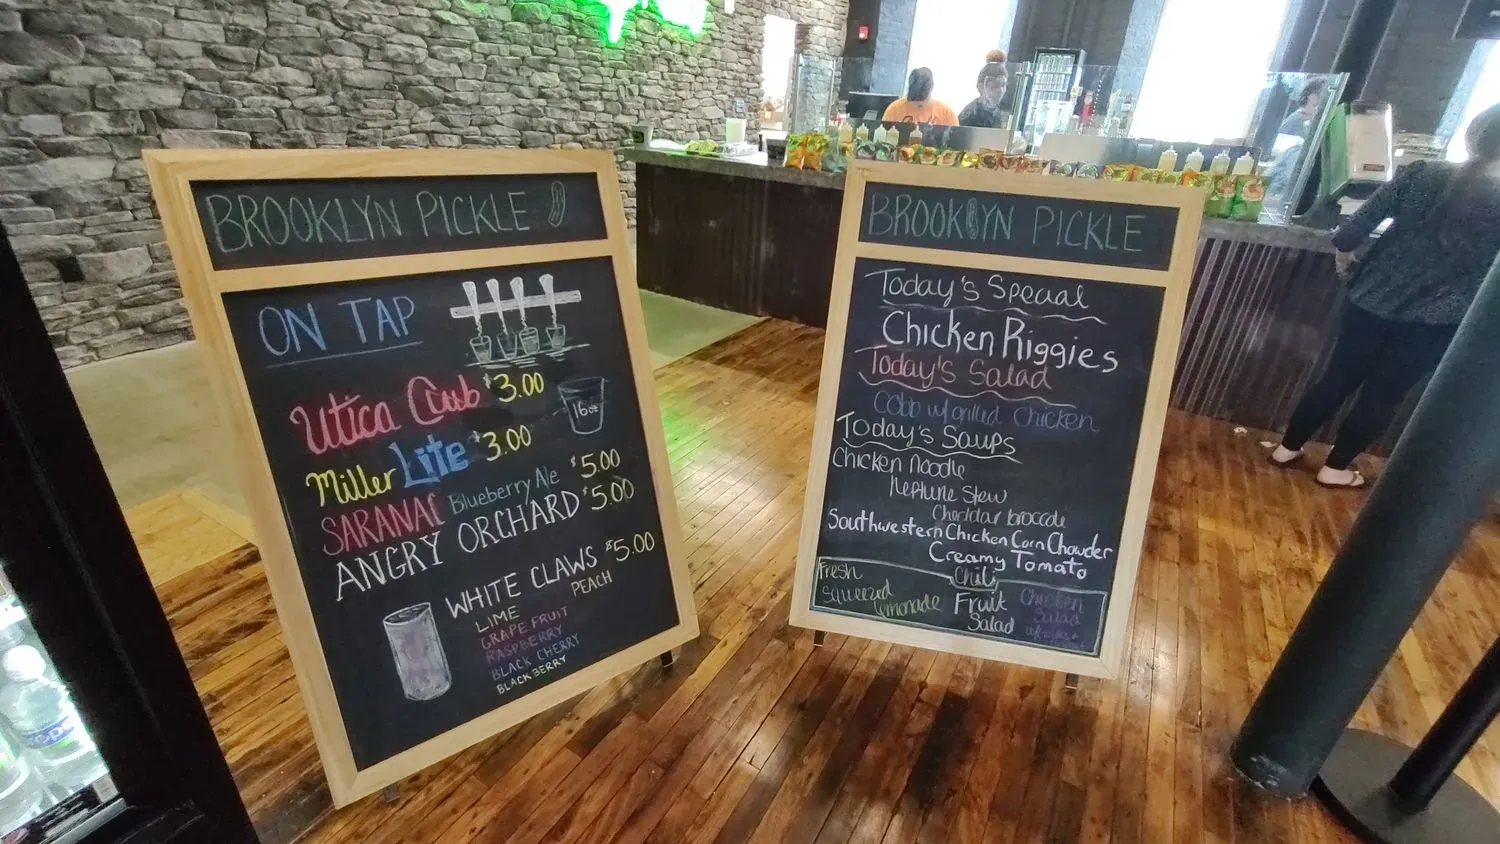 BROOKLYN PICKLE
ON TAP
Utica Club $3.00
16oz
Miller Lite $3.00
SARANAC Blueberry Ale $5.00
ANGRY ORCHARD $5.00
WHITE CLAWS $5.00
LIME PEACH
GRAPEFRUIT
RASPBERRY
BLACK CHERRY
BLACKBERRY
BROOKLYN PICKLE
Today's Special
Chicken Riggies
Today's Salad
Cobb w/grilled Chicken
Today's Soups
Chicken Noodle
Neptune Stew
Cheddar broccoli
Southwestern Chicken Corn Chowder
Creamy Tomato
Chili
Fresh Squeezed Lemonade
Fruit Salad
Chicken Salad